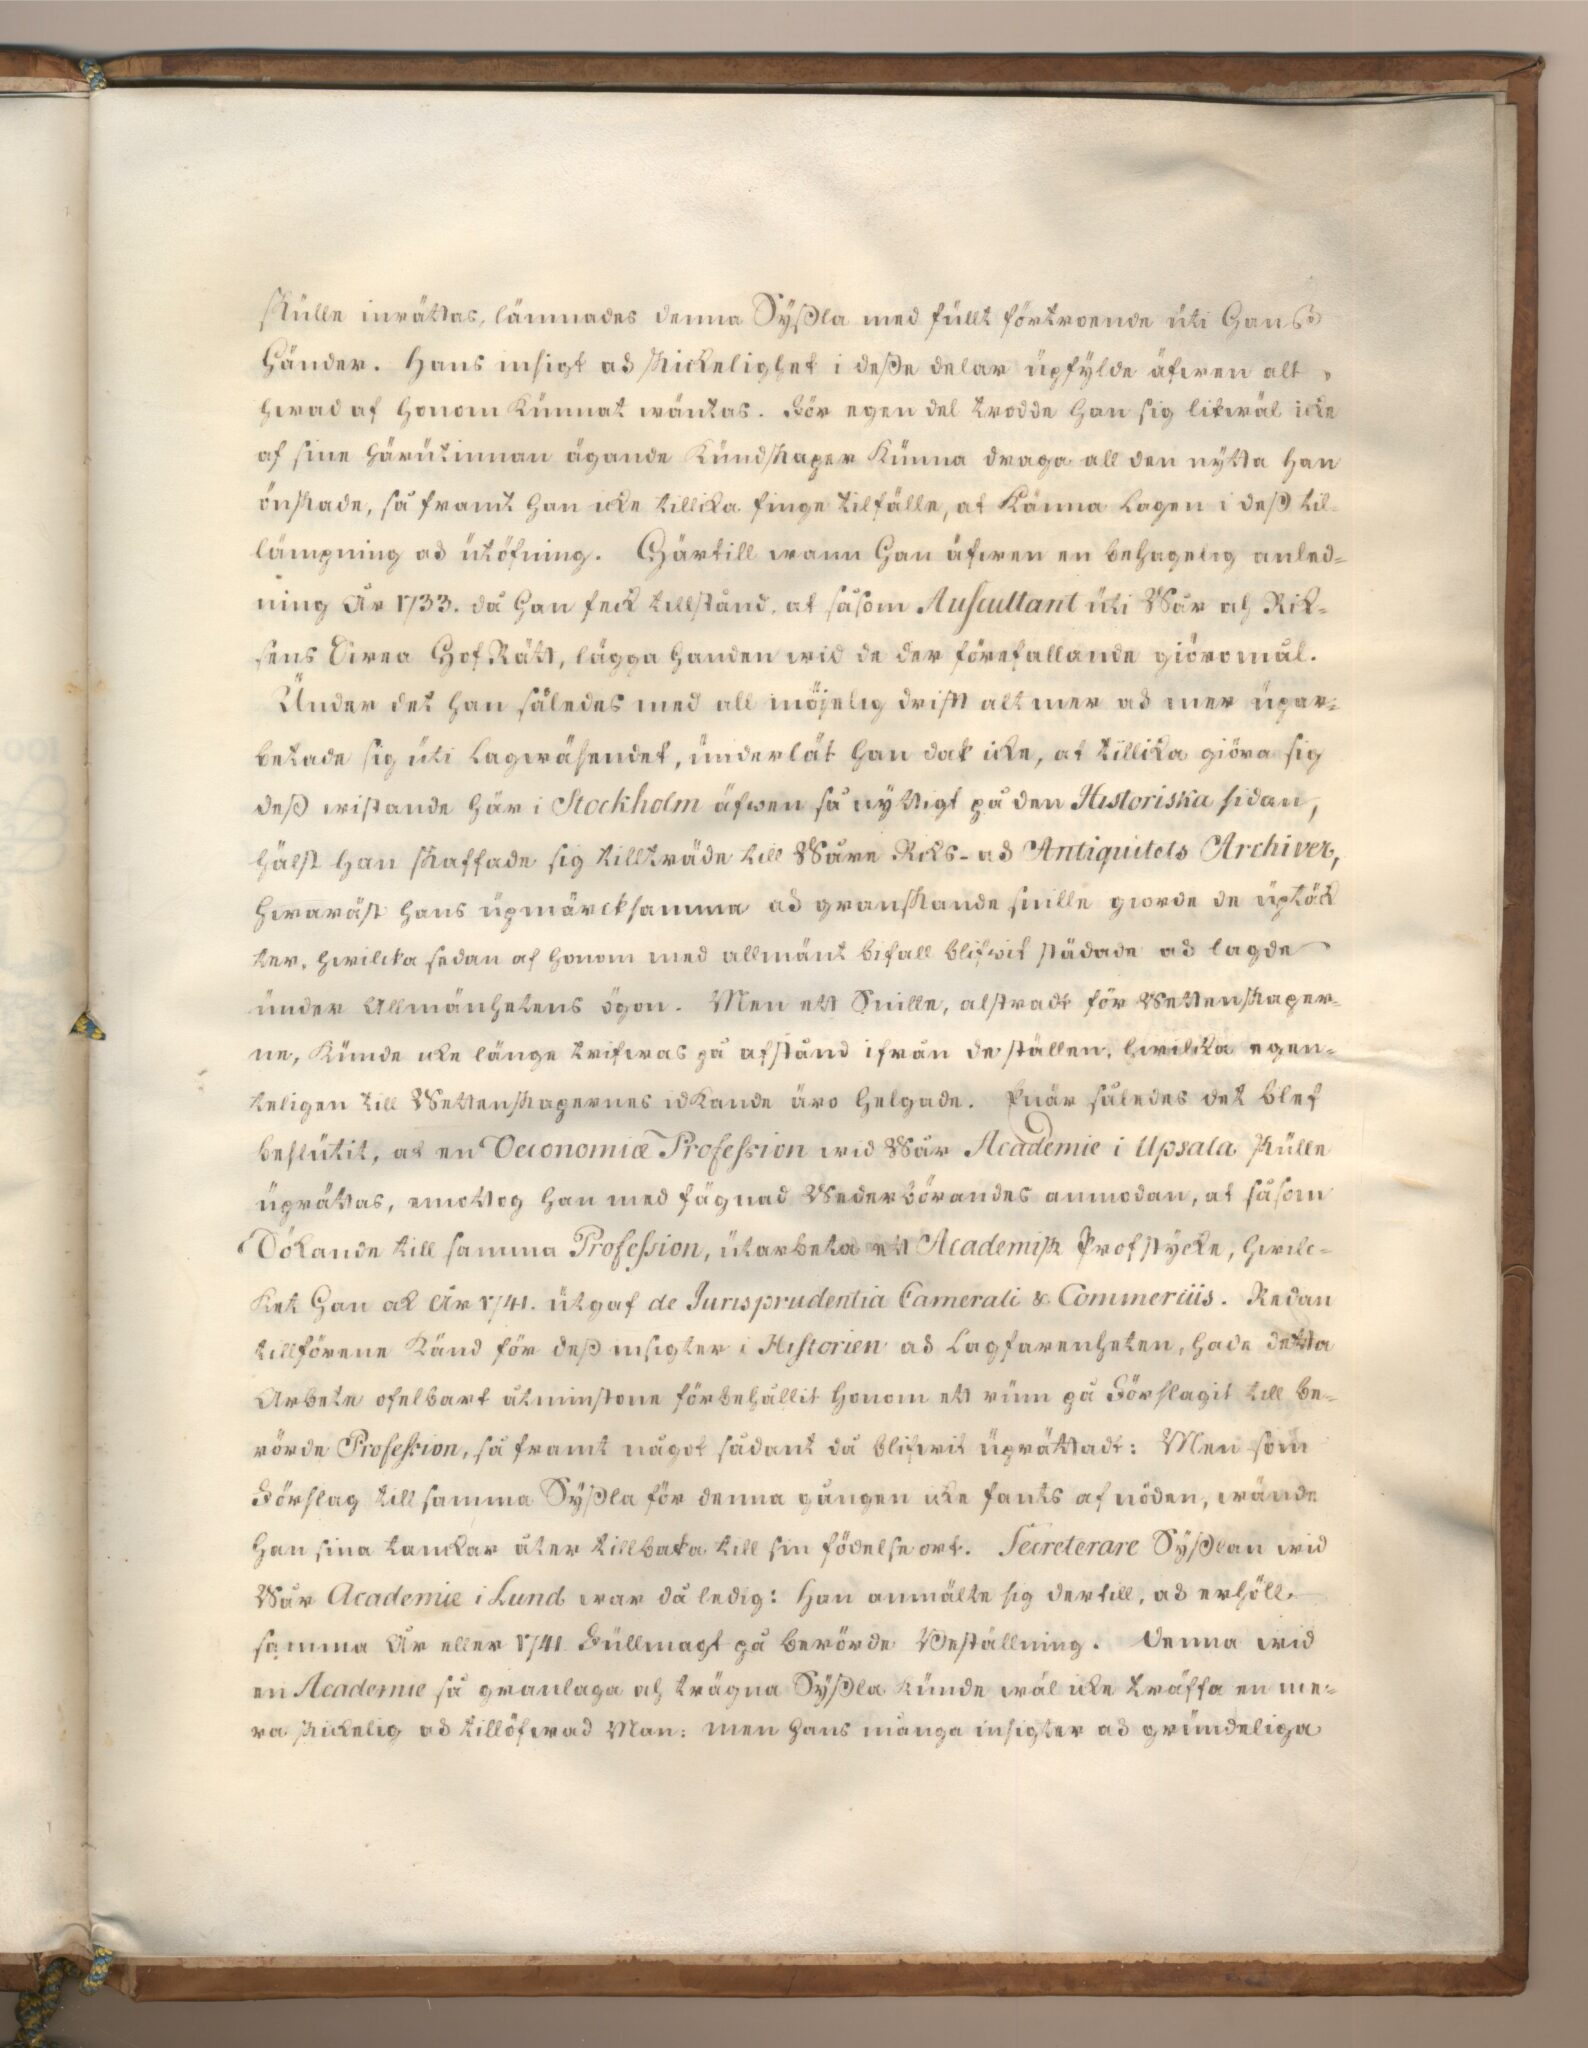 skulle inrättas, lämnades denna Syßla med fullt förtroende uti Hans
Händer. Hans insigt och skickelighet i deße delar upfylde äfwen alt
hwad af honom kunnat wäntas. För egen del trodde han sig likwäl icke
af sine härutinnan ägande kundskaper kunna draga all den nytta han
önskade, så framt han icke tillika finge tilfälle, at känna Lagen i deß til-
lämpning och utöfning. Härtill wann Han äfwen en behagelig anled-
ning År 1733. då Han feck tillstånd, at såsom Auscultant uti Wår och Rik-
sens Swea HofRätt, lägga handen wid de der förefallande giöromål.
Under det han således med all möjelig drift alt mer och mer upar-
betade sig uti Lagwäsendet, underlät Han dok icke, at tillika giöra sig
deß wistande här i Stockholm äfwen så nyttigt på den Historiska sidan,
hälst han skaffade sig tillträde till Wåre Riks- och Antiquitets Archiver,
hwaräst hans upmärcksamma och granskande snille giorde de uptäck
ter, hwilcka sedan af honom med allmänt bifall blifwit städade och lagde
under Allmänhetens ögon. Men ett Snille, alstradt för Wettenskaper-
ne, kunde icke länge trifwas på afstånd ifrån de ställen, hwilcka egen-
teligen till Wettenskapernes idkande äro helgade. När således det blef
beslutit, at en Oeconomiæ Profession wid Wår Academie i Upsala skulle
uprättas, emottog han med fägnad Wederbörandes anmodan, at såsom
Sökande till samma Profession, utarbeta ett Academisk Profstycke, hwilc-
ket Han ock År 1741. utgaf de Jurisprudentia Camerali & Commerciis. Redan
tillförene känd för deß insigter i Historien och Lagfarenheten, hade detta
Arbete ofelbart åtminstone förbehållit honom ett rum på Förslagit till be-
rörde Profession, så framt något sådant då blifwit uprättadt: Men som
Förslag till samma Syßla för denna gången icke fants af nöden, wände
han sina tanckar åter tillbaka till sin födelse ort. Secreterare Syßlan wid
Wår Academie i Lund war då ledig: Han anmälte sig dertill, och erhöll
samma År eller 1741 Fullmagt på berörde Beställning. Denna wid
en Academie så granlaga och trägna Syßla kunde wäl icke träffa en me-
ra skickelig och tillöfwad Man: men Hans många insigter och grundeliga